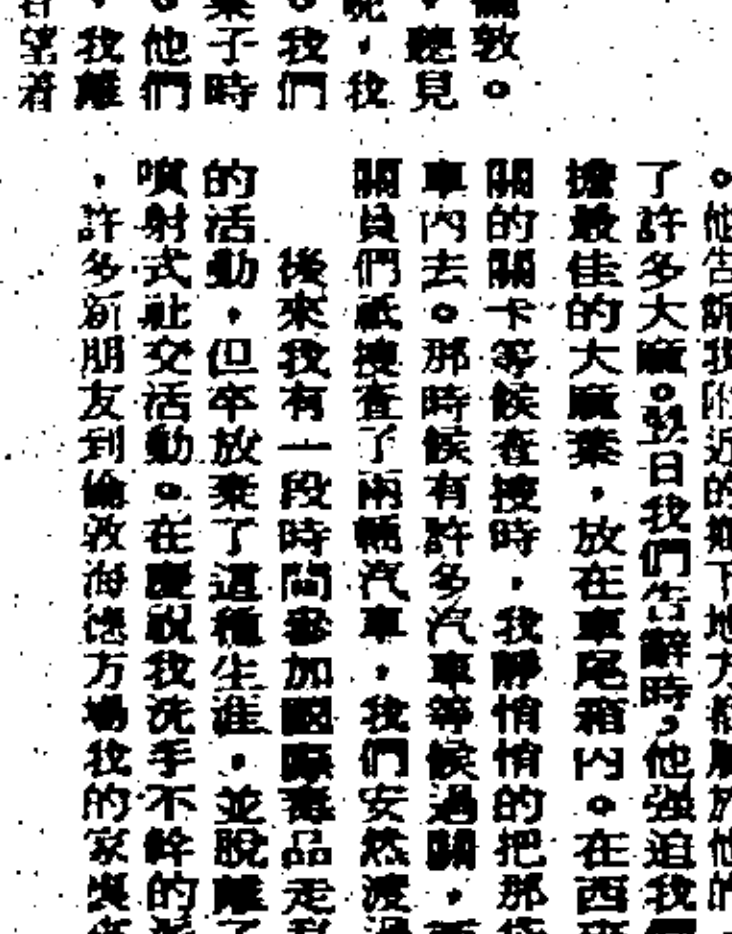 敦。
，聽見
，我
。我們
子時
。他們
，我離
望着
。他告訴我附近的鄉下地方都屬於他的
了許多大麻。翌日我們告辭時，他強迫我
擔最佳的大麻葉，放在車尾箱內。在西
關的關卡等候查搜時，我靜悄悄的把那
車內去。那時候有許多汽車等候過關，
關員們祇搜查了兩輛汽車，我們安然渡
後來我有一段時間參加國際毒品走私
的活動，但卒放棄了這種生涯，並脫離了
噴射式社交活動。在慶祝我洗手不幹的
，許多新朋友到倫敦海德方場我的家與